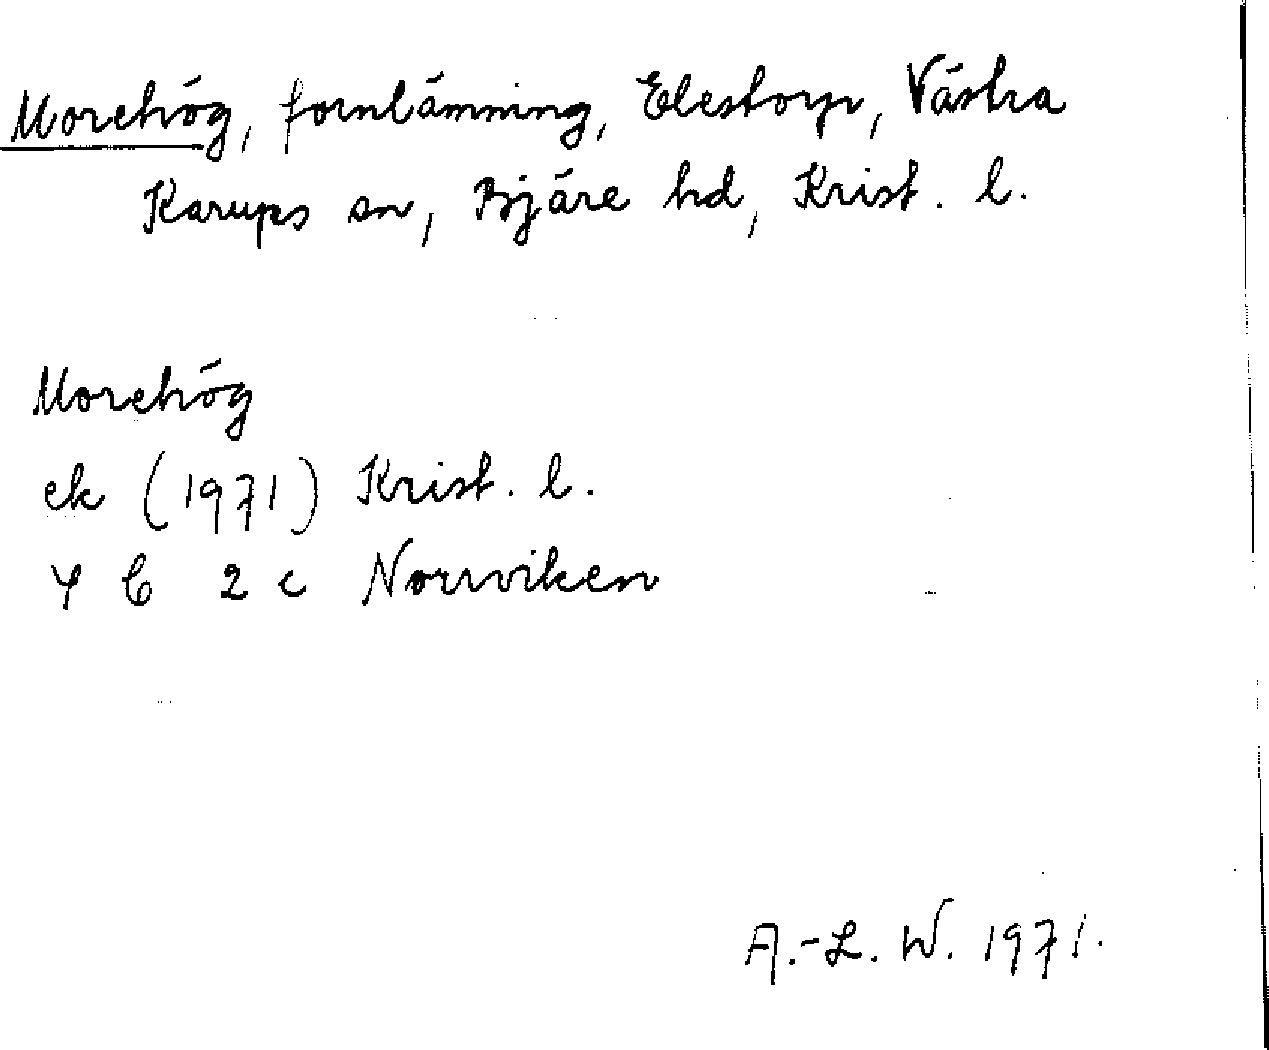 Morehög, fornlämning, Elestorp, Västra
Karups sn, Bjäre hd, Krist. l.
Morehög
ek (1971) Krist. l.
4 C 2 c Norrviken
A.-L. W. 1971.